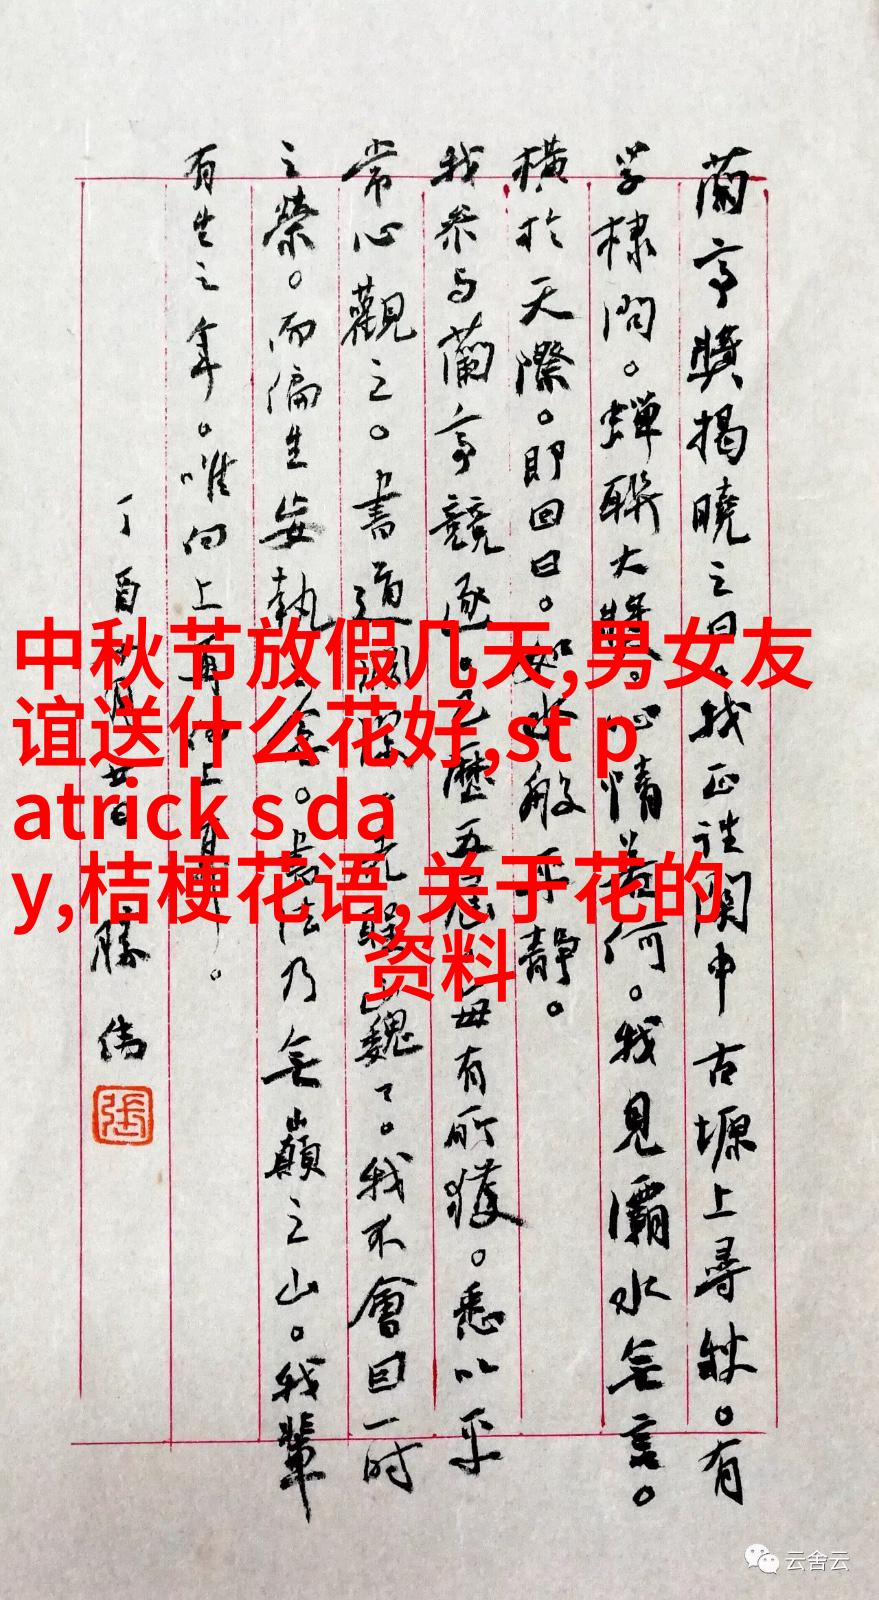 蘭亭奬揭曉之日。我正在関中古塬上尋秋。有
学棣問。蟬聯大奬。心情若何。我見灞水無言。
橫於天際。即回曰。如水般平靜。
我參与蘭亭競逐。已歷五屆。每有所獲。悉以平
常心觀之。書道
巍了。我不會因一时
之榮。而偏生妄執之念。書法乃無巔之山。我輩
有生之年。唯向上再向上
丁酉
張
中秋节放假几天,男女友
谊送什么花好,st p
atrick s da
y,桔梗花语,关于花的
资料
云舍云